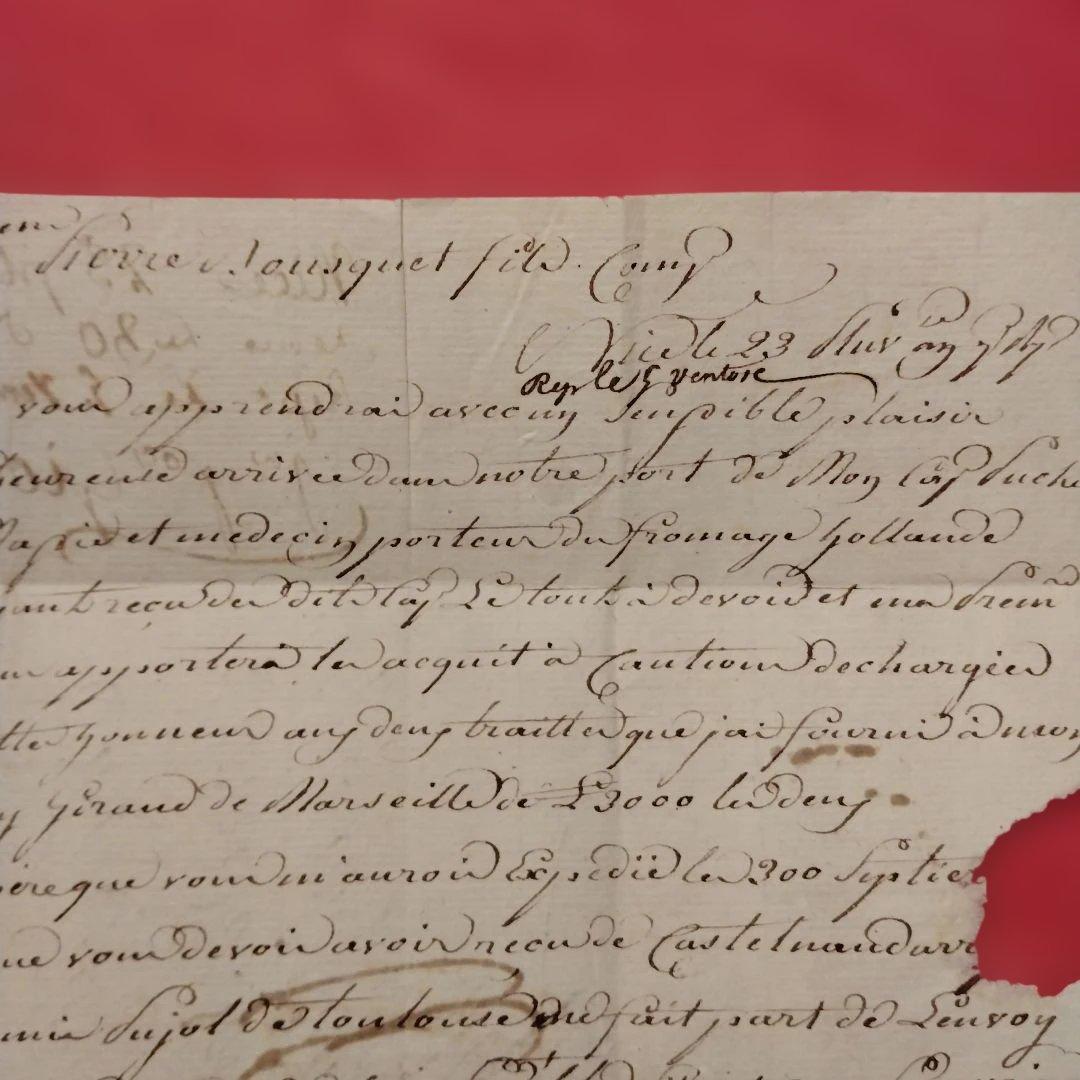 Pierre Bousquet fils. Comp
Nice le 23 Pluv an
Rep le 5 Ventose
vous apprendrai avec un sensible plaisir
heureuse arrivée dans notre port de Mon Cap Puche
et medecin porteur du fromage hollande
recu des dits Cap Le tout à devoir et ma Prem
apportera les acquit à Cautions dechargés
honneur aux deux traittes que jai fourni à mon
Giraud de Marseille de £3000 les deux
que vous m'aurois Expedié les 300 Septier
que vous devois avoir recu de Castelnaudarr
amis Pujol de toulouse me fait part de Lenvoy